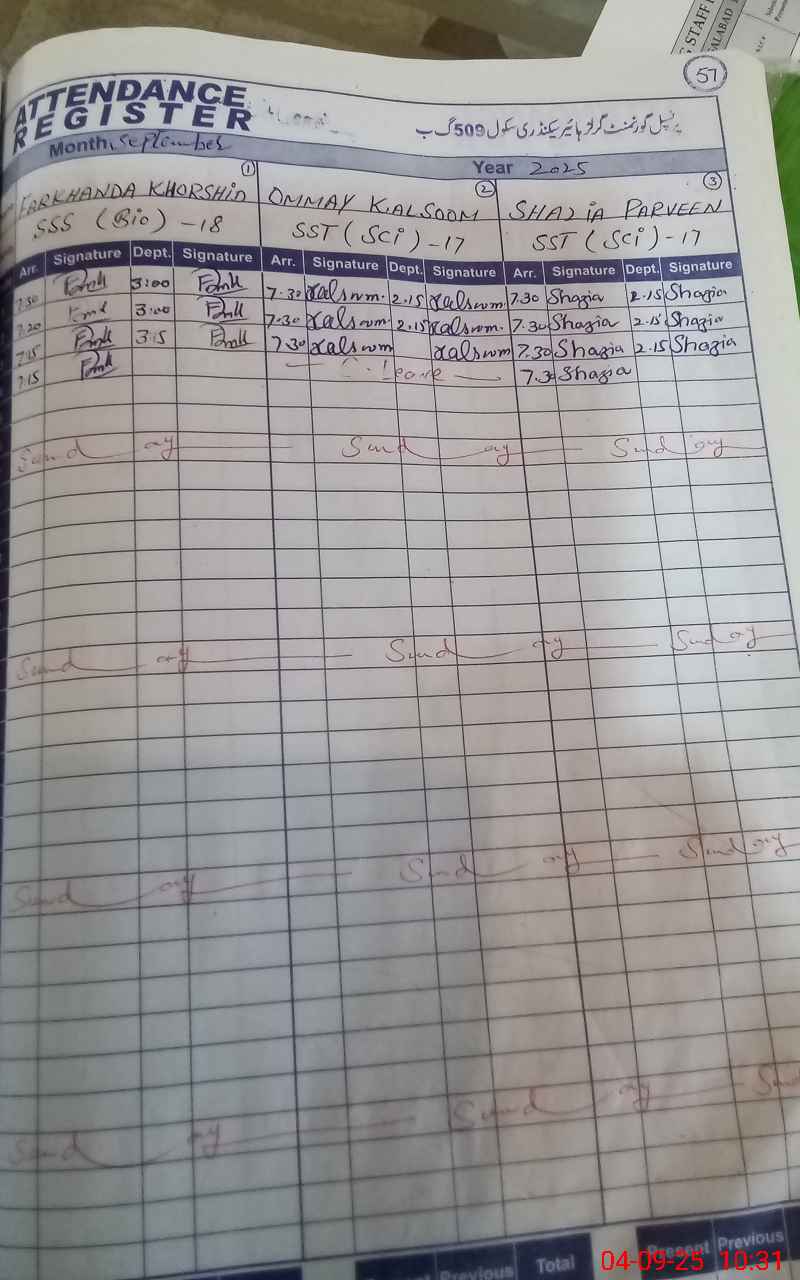 57
ATTENDANCE
REGISTER
پرنسپل گورنمنٹ گرلز ہائیر سیکنڈری سکول 509 گ ب
Month. September Year 2025
1 2 3
FARKHANDA KHORSHID OMMAY KALSOOM SHAZIA PARVEEN
SSS (Bio) -18 SST (Sci) -17 SST (Sci) -17
Arr. Signature Dept. Signature Arr. Signature Dept. Signature Arr. Signature Dept. Signature
7.30 3:00 7.30 Kalsoom. 2.15 Kalsoom 7.30 Shazia 2.15 Shazia
7:20 3:00 7.30 Kalsoom 2.15 Kalsoom. 7.30 Shazia 2.15 Shazia
7:15 3:15 7.30 Kalsoom Kalsoom 7.30 Shazia 2.15 Shazia
7:15 Leave 7.30 Shazia
Sunday Sunday Sunday
Sunday Sunday Sunday
Sunday Sunday Sunday
Sunday Sunday Sund
Previous Total Present Previous
STAFF
SALABAD
04-09-25 10:31